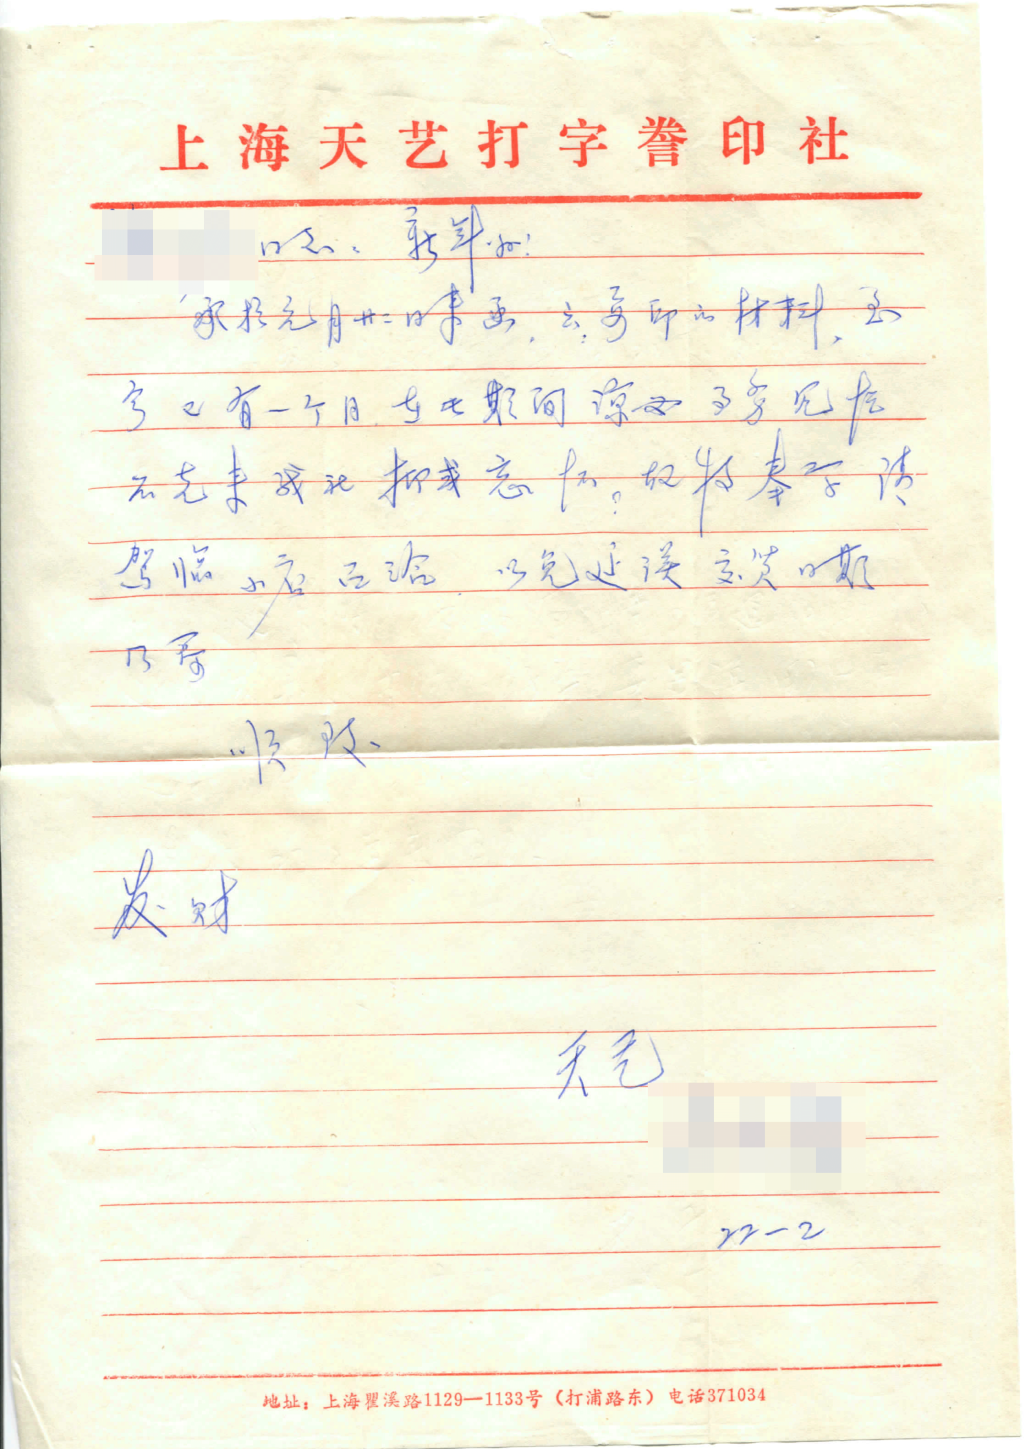 上海天艺打字誊印社
同志：新年好！
承于元月廿二日来函，云：要印的材料，至
今已有一个月，在此期间谅必事务冗忙
不克来我社抑或忘怀？故特奉字请
驾临小店面谕，以免延误交货日期
顺致
发财
天艺
22-2
地址：上海瞿溪路1129—1133号（打浦路东）电话371034